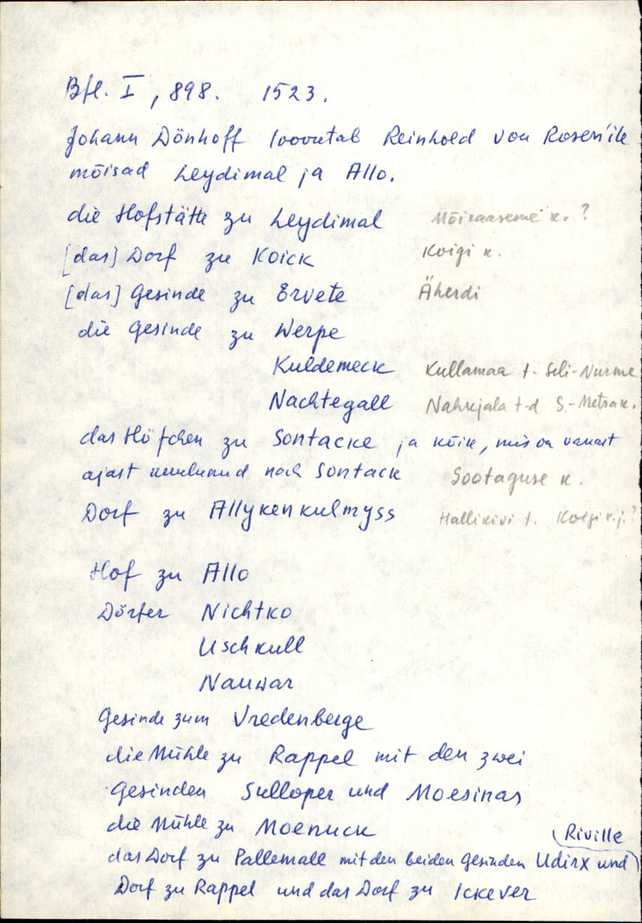 Bfl. I, 898. 1523.
Johann Dönhoff loovutab Reinhold von Rosen'ile
mõisad Leydimal ja Allo.
die Hofstätte zu Leydimal Mõisaaseme k. ?
[das] Dorf zu Koick Koigi k.
[das] Gesinde zu Ervete Äherdi
die Gesinde zu Werpe
Kuldemeck Kullamaa t. Seli-Nurme
Nachtegall Nahkjala t-d S.-Metsa k.
das Höfchen zu Sontacke ja kõik, mis on vanast
ajast kuulunud nach Sontack Sootaguse k.
Dorf zu Allykenkulmyss Hallikivi t. Koigi k.j.?
Hof zu Allo
Dörfer Nichtko
Uschkull
Nauwar
Gesinde zum Vredenberge
die Mühle zu Rappel mit den zwei
Gesinden Sulloper und Moesinas
die Mühle zu Moenuck
(Riville
das Dorf zu Pallemall mit den beiden Gesinden Udirx und)
Dorf zu Rappel und das Dorf zu Ickever